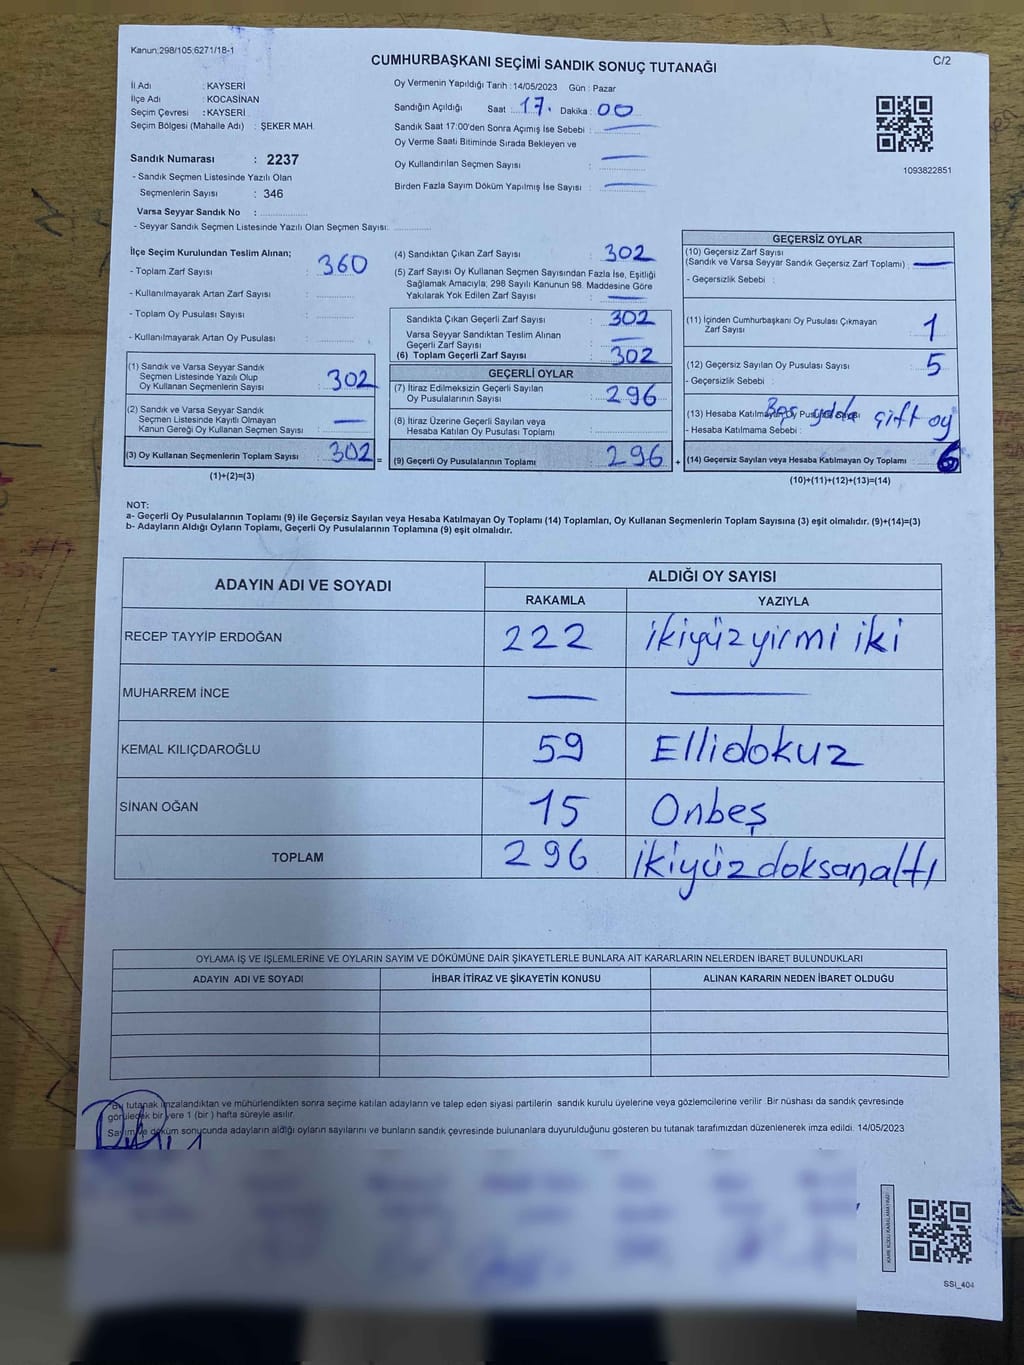 Kanun:298/105;6271/18-1
C/2
CUMHURBAŞKANI SEÇİMİ SANDIK SONUÇ TUTANAĞI
İl Adı : KAYSERİ
İlçe Adı : KOCASİNAN
Seçim Çevresi : KAYSERİ
Seçim Bölgesi (Mahalle Adı) : ŞEKER MAH.
Sandık Numarası : 2237
- Sandık Seçmen Listesinde Yazılı Olan
Seçmenlerin Sayısı : 346
Varsa Seyyar Sandık No :
- Seyyar Sandık Seçmen Listesinde Yazılı Olan Seçmen Sayısı:
Oy Vermenin Yapıldığı Tarih : 14/05/2023 Gün : Pazar
Sandığın Açıldığı Saat 17. Dakika : 00
Sandık Saat 17:00'den Sonra Açımış İse Sebebi : —
Oy Verme Saati Bitiminde Sırada Bekleyen ve
Oy Kullandırılan Seçmen Sayısı : —
Birden Fazla Sayım Döküm Yapılmış İse Sayısı : —
1093822851
İlçe Seçim Kurulundan Teslim Alınan;
- Toplam Zarf Sayısı : 360
- Kullanılmayarak Artan Zarf Sayısı :
- Toplam Oy Pusulası Sayısı :
- Kullanılmayarak Artan Oy Pusulası :
(1) Sandık ve Varsa Seyyar Sandık
Seçmen Listesinde Yazılı Olup
Oy Kullanan Seçmenlerin Sayısı : 302
(2) Sandık ve Varsa Seyyar Sandık
Seçmen Listesinde Kayıtlı Olmayan
Kanun Gereği Oy Kullanan Seçmen Sayısı : —
(3) Oy Kullanan Seçmenlerin Toplam Sayısı : 302 =
(1)+(2)=(3)
(4) Sandıktan Çıkan Zarf Sayısı : 302
(5) Zarf Sayısı Oy Kullanan Seçmen Sayısından Fazla İse, Eşitliği
Sağlamak Amacıyla; 298 Sayılı Kanunun 98. Maddesine Göre
Yakılarak Yok Edilen Zarf Sayısı : —
Sandıkta Çıkan Geçerli Zarf Sayısı : 302
Varsa Seyyar Sandıktan Teslim Alınan
Geçerli Zarf Sayısı : —
(6) Toplam Geçerli Zarf Sayısı : 302
GEÇERLİ OYLAR
(7) İtiraz Edilmeksizin Geçerli Sayılan
Oy Pusulalarının Sayısı : 296
(8) İtiraz Üzerine Geçerli Sayılan veya
Hesaba Katılan Oy Pusulası Toplamı :
(9) Geçerli Oy Pusulalarının Toplamı : 296 +
GEÇERSİZ OYLAR
(10) Geçersiz Zarf Sayısı
(Sandık ve Varsa Seyyar Sandık Geçersiz Zarf Toplamı) : —
- Geçersizlik Sebebi :
(11) İçinden Cumhurbaşkanı Oy Pusulası Çıkmayan
Zarf Sayısı : 1
(12) Geçersiz Sayılan Oy Pusulası Sayısı : 5
- Geçersizlik Sebebi :
(13) Hesaba Katılmayan Oy Pusulası Sayısı
çift oy
- Hesaba Katılmama Sebebi :
(14) Geçersiz Sayılan veya Hesaba Katılmayan Oy Toplamı : 6
(10)+(11)+(12)+(13)=(14)
NOT:
a- Geçerli Oy Pusulalarının Toplamı (9) ile Geçersiz Sayılan veya Hesaba Katılmayan Oy Toplamı (14) Toplamları, Oy Kullanan Seçmenlerin Toplam Sayısına (3) eşit olmalıdır. (9)+(14)=(3)
b- Adayların Aldığı Oyların Toplamı, Geçerli Oy Pusulalarının Toplamına (9) eşit olmalıdır.
ADAYIN ADI VE SOYADI ALDIĞI OY SAYISI
RAKAMLA YAZIYLA
RECEP TAYYİP ERDOĞAN 222 ikiyüzyirmi iki
MUHARREM İNCE — —
KEMAL KILIÇDAROĞLU 59 Ellidokuz
SİNAN OĞAN 15 Onbeş
TOPLAM 296 ikiyüzdoksanaltı
OYLAMA İŞ VE İŞLEMLERİNE VE OYLARIN SAYIM VE DÖKÜMÜNE DAİR ŞİKAYETLERLE BUNLARA AİT KARARLARIN NELERDEN İBARET BULUNDUKLARI
ADAYIN ADI VE SOYADI İHBAR İTİRAZ VE ŞİKAYETİN KONUSU ALINAN KARARIN NEDEN İBARET OLDUĞU
Bu tutanak imzalandıktan ve mühürlendikten sonra seçime katılan adayların ve talep eden siyasi partilerin sandık kurulu üyelerine veya gözlemcilerine verilir. Bir nüshası da sandık çevresinde
görülecek bir yere 1 (bir) hafta süreyle asılır.
Sayım ve döküm sonucunda adayların aldığı oyların sayılarını ve bunların sandık çevresinde bulunanlara duyurulduğunu gösteren bu tutanak tarafımızdan düzenlenerek imza edildi. 14/05/2023
SSİ_404